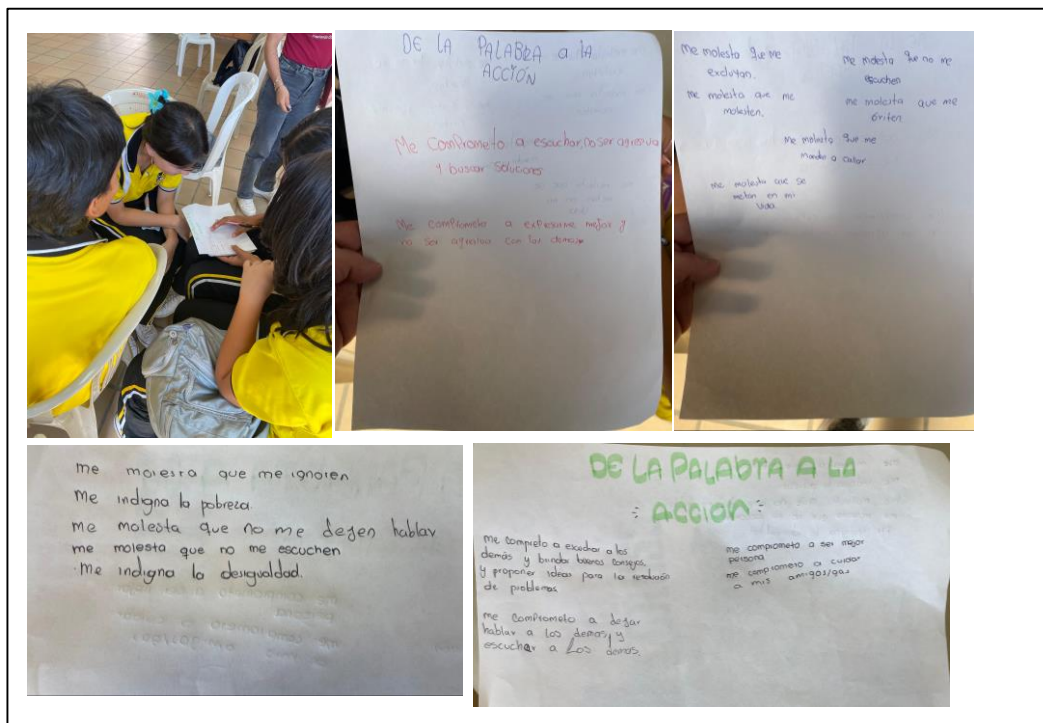 DE LA PALABRA a la
ACCIÓN
Me comprometo a escuchar, no ser agresiva
y buscar soluciones
Me comprometo a expresarme mejor y
no ser agresiva con los demas
me molesta que me
excluyan.
me molesta que me
molesten.
me molesta que no me
escuchen
me molesta que me
griten
me molesta que me
mande a callar
me molesta que se
metan en mi
vida
me molesta que me ignoren
Me indigna la pobreza.
me molesta que no me dejen hablar
me molesta que no me escuchen
Me indigna la desigualdad.
DE LA PALABRA A LA
ACCION
me compreto a escuchar a los
demás y brindar buenos consejos,
y proponer ideas para la resolución
de problemas
me comprometo a dejar
hablar a los demas, y
escuchar a Los demas.
me comprometo a ser mejor
persona
me comprometo a cuidar
a mis amigos/gas